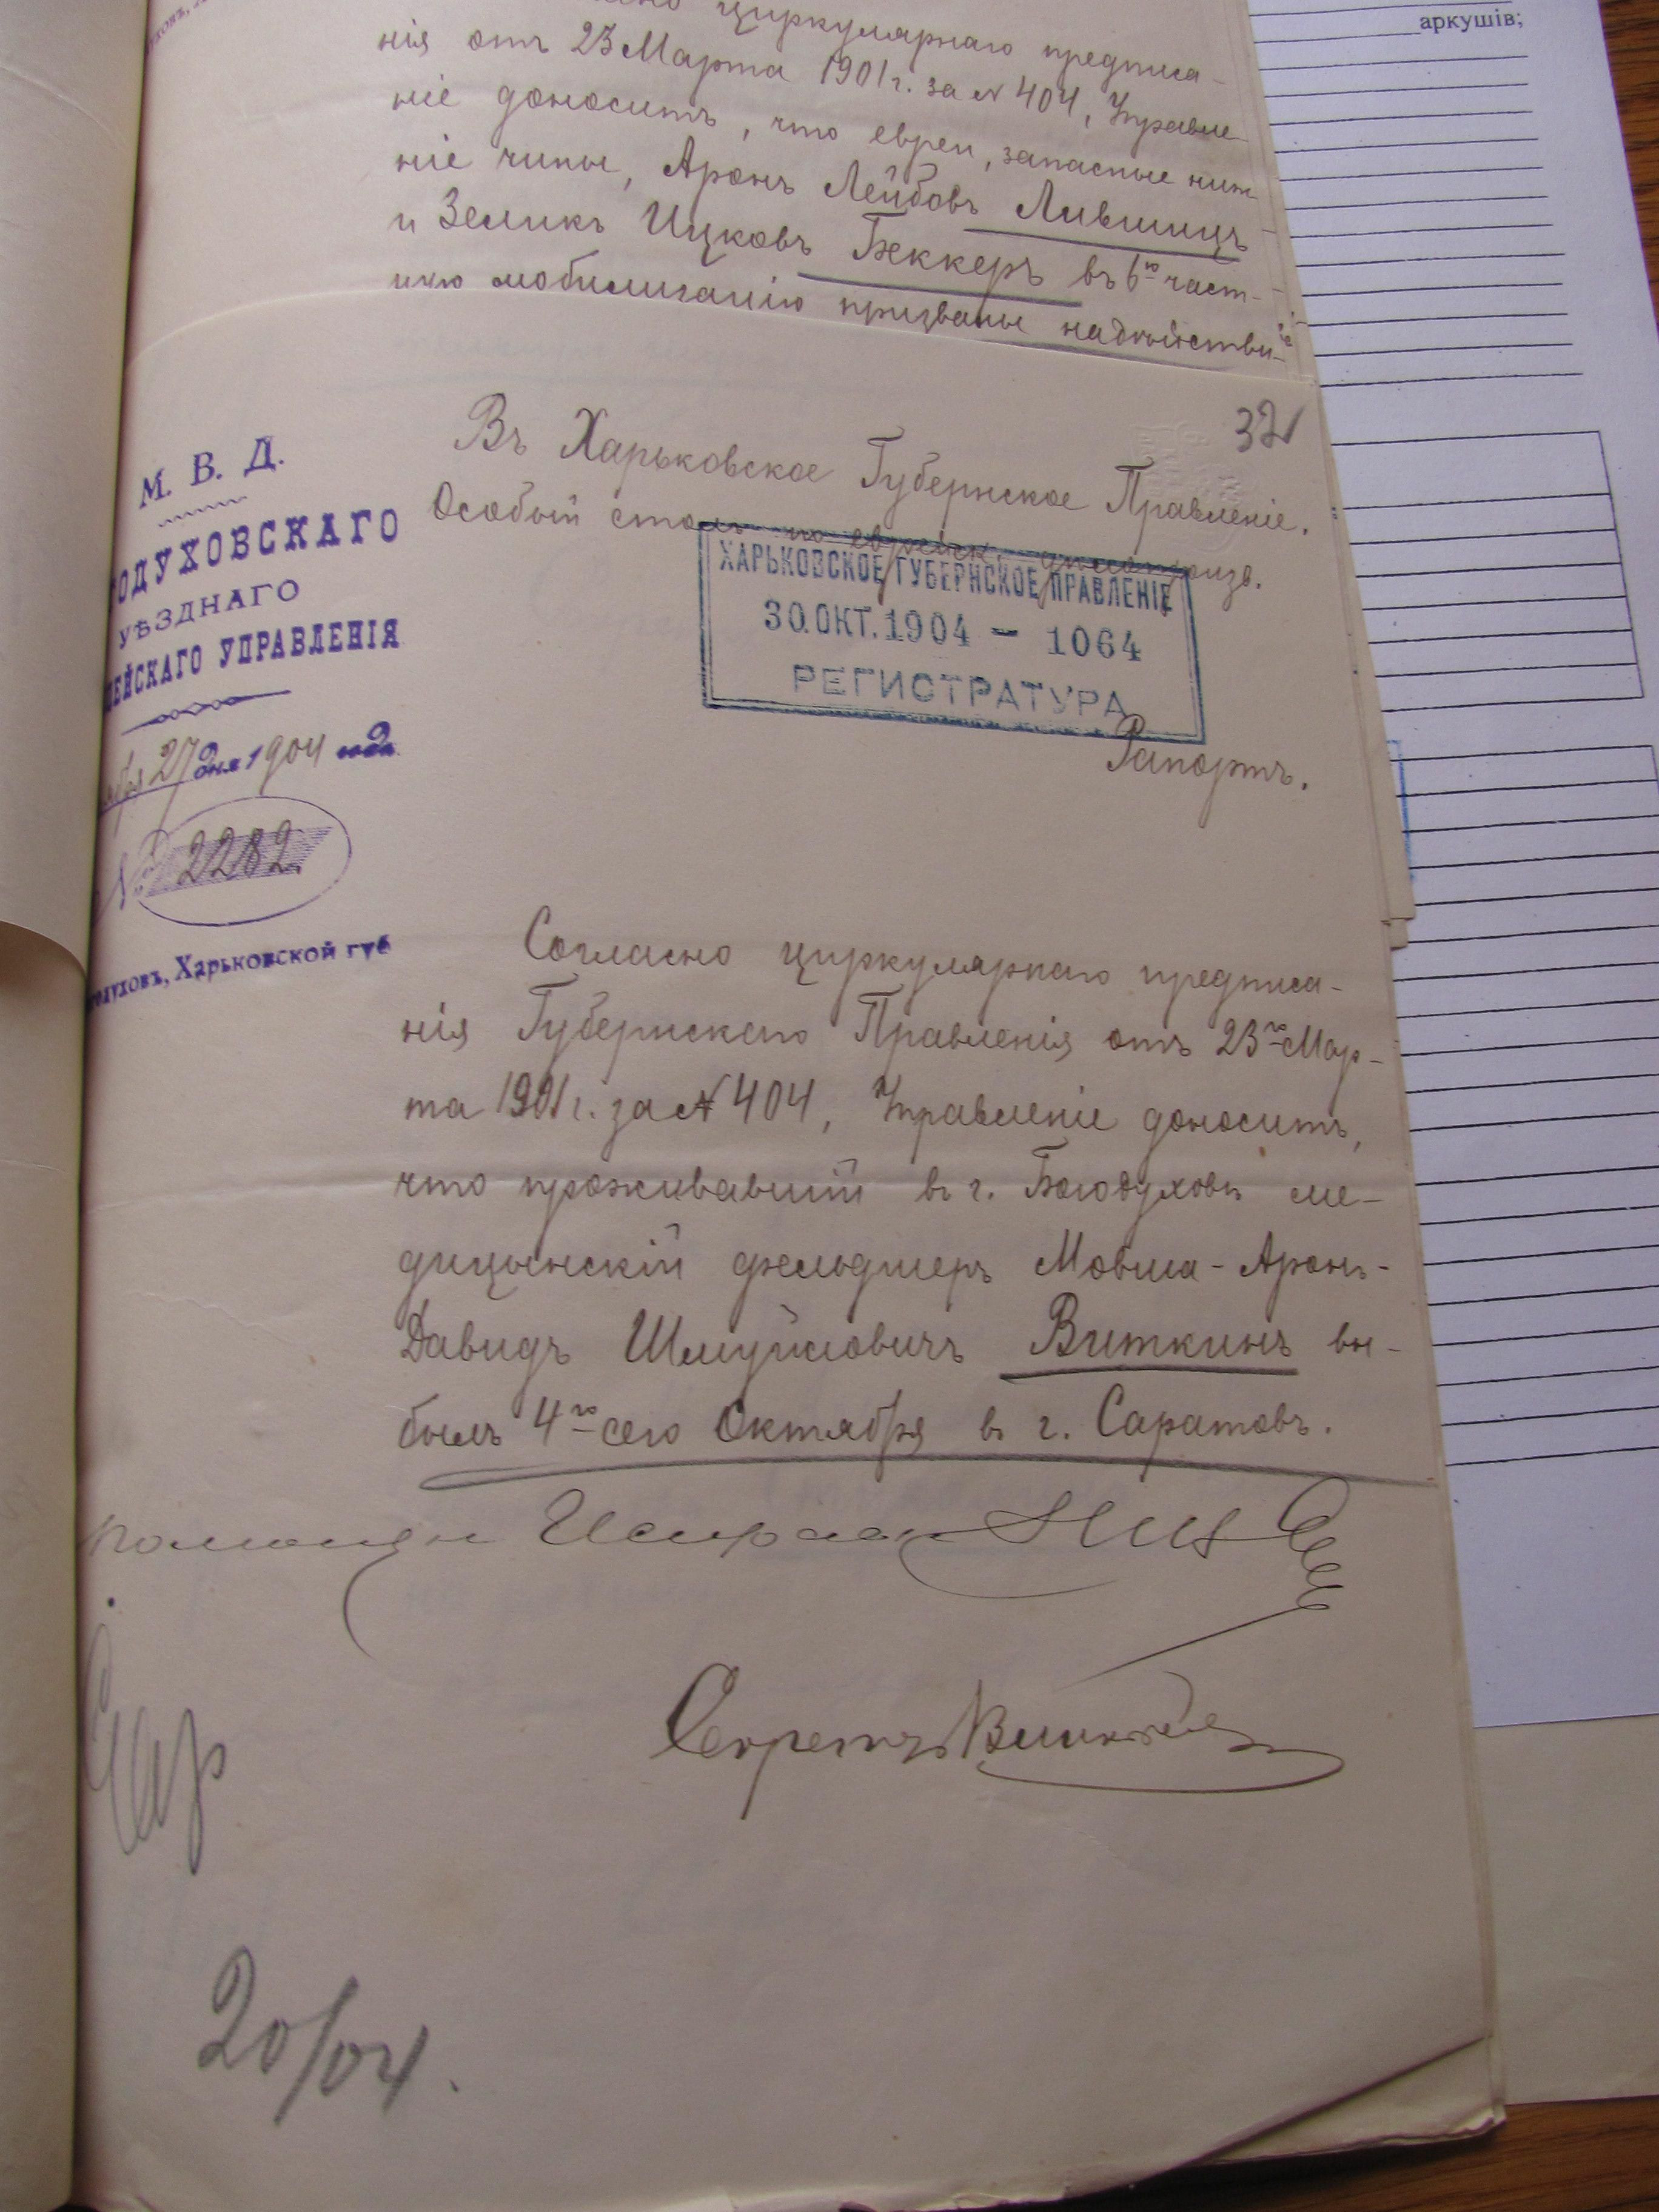 аркушів;
циркулярнаго предписа-
нія отъ 23 Марта 1901 г. за № 404, Управле-
ніе доноситъ, что евреи, запасные ниж-
ніе чины, Аронъ Лейбовъ Лившицъ
и Зеликъ Ицковъ Беккеръ въ 6ю част-
ную мобилизацію призваны на дѣйстви-
32
Въ Харьковское Губернское Правленіе.
Особый столъ по еврейск. дѣлопроизв.
М. В. Д.
ОДУХОВСКАГО
УѢЗДНАГО
ЕЙСКАГО УПРАВЛЕНІЯ
27 дня 1904 года
№ 2282
одуховъ, Харьковской губ
ХАРЬКОВСКОЕ ГУБЕРНСКОЕ ПРАВЛЕНІЕ
30.ОКТ.1904 — 1064
РЕГИСТРАТУРА
Рапортъ.
Согласно циркулярнаго предписа-
нія Губернскаго Правленія отъ 23го Мар-
та 1901 г. за № 404, Управленіе доноситъ,
что проживавшій въ г. Богодуховѣ ме-
дицынскій фельдшеръ Мовша-Аронъ-
Давидъ Шмуйловичъ Виткинъ вы-
былъ 4го сего Октября въ г. Саратовъ.
Помощн Исправ
Секретарь
20/04.